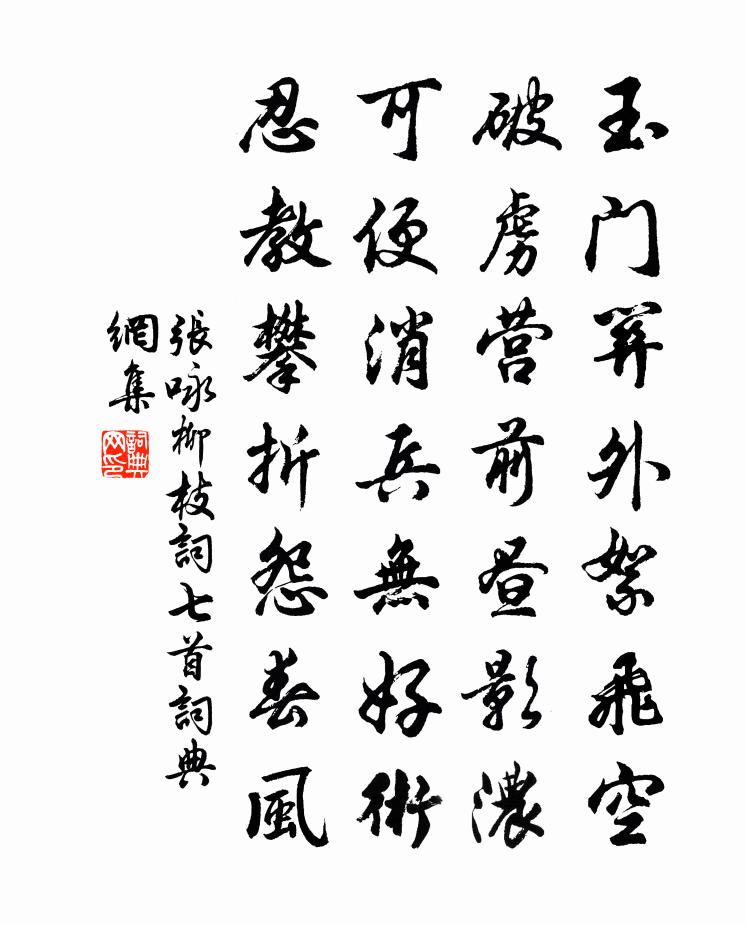 玉门关外絮飛空
破虏营前昼影濃
可便消兵無好術
忍教攀折怨春風
張咏柳枝詞七首詞典
網集
詞典
网印